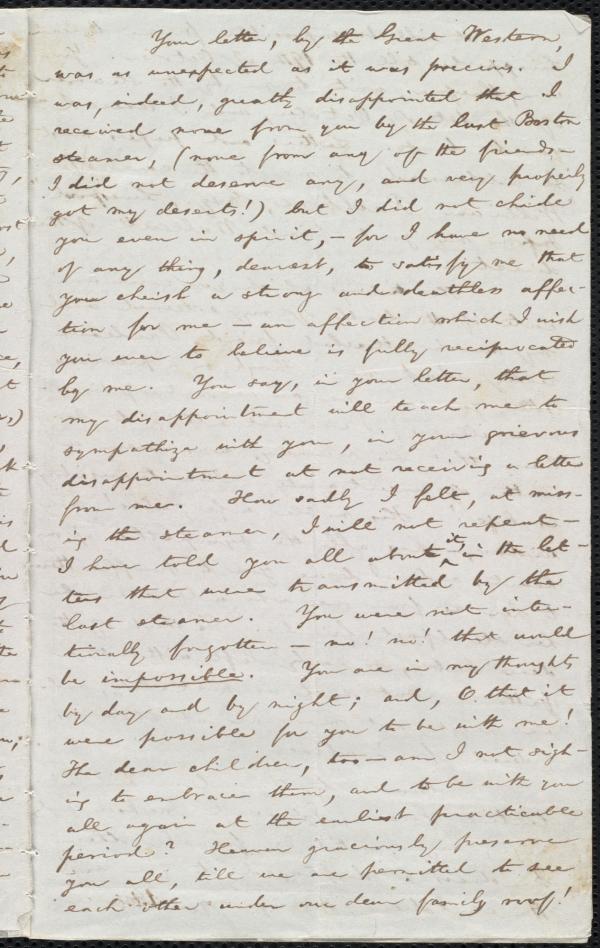 Your letter, by the Great Western,
was as unexpected as it was precious. I
was, indeed, greatly disappointed that I
received none from you by the last Boston
steamer, (none from any of the friends—
I did not deserve any, and very properly
got my deserts!) but I did not chide
you even in spirit,— for I have no need
of any thing, dearest, to satisfy me that
you cherish a strong and deathless affec-
tion for me — an affection which I wish
you ever to believe is fully reciprocated
by me. You say, in your letter, that
my disappointment will teach me to
sympathize with you, in your grievous
disappointment at not receiving a letter
from me. How sadly I felt, at miss-
ing the steamer, I will not repeat—
I have told you all about it, in the let-
ters that were transmitted by the
last steamer. You were not inten-
tionally forgotten — no! no! that would
be impossible. You are in my thoughts
by day and by night; and, O that it
were possible for you to be with me!
The dear children, too—am I not sigh-
ing to embrace them, and to be with you
all again at the earliest practicable
period? Heaven graciously preserve
you all, till we are permitted to see
each other under our dear family roof!